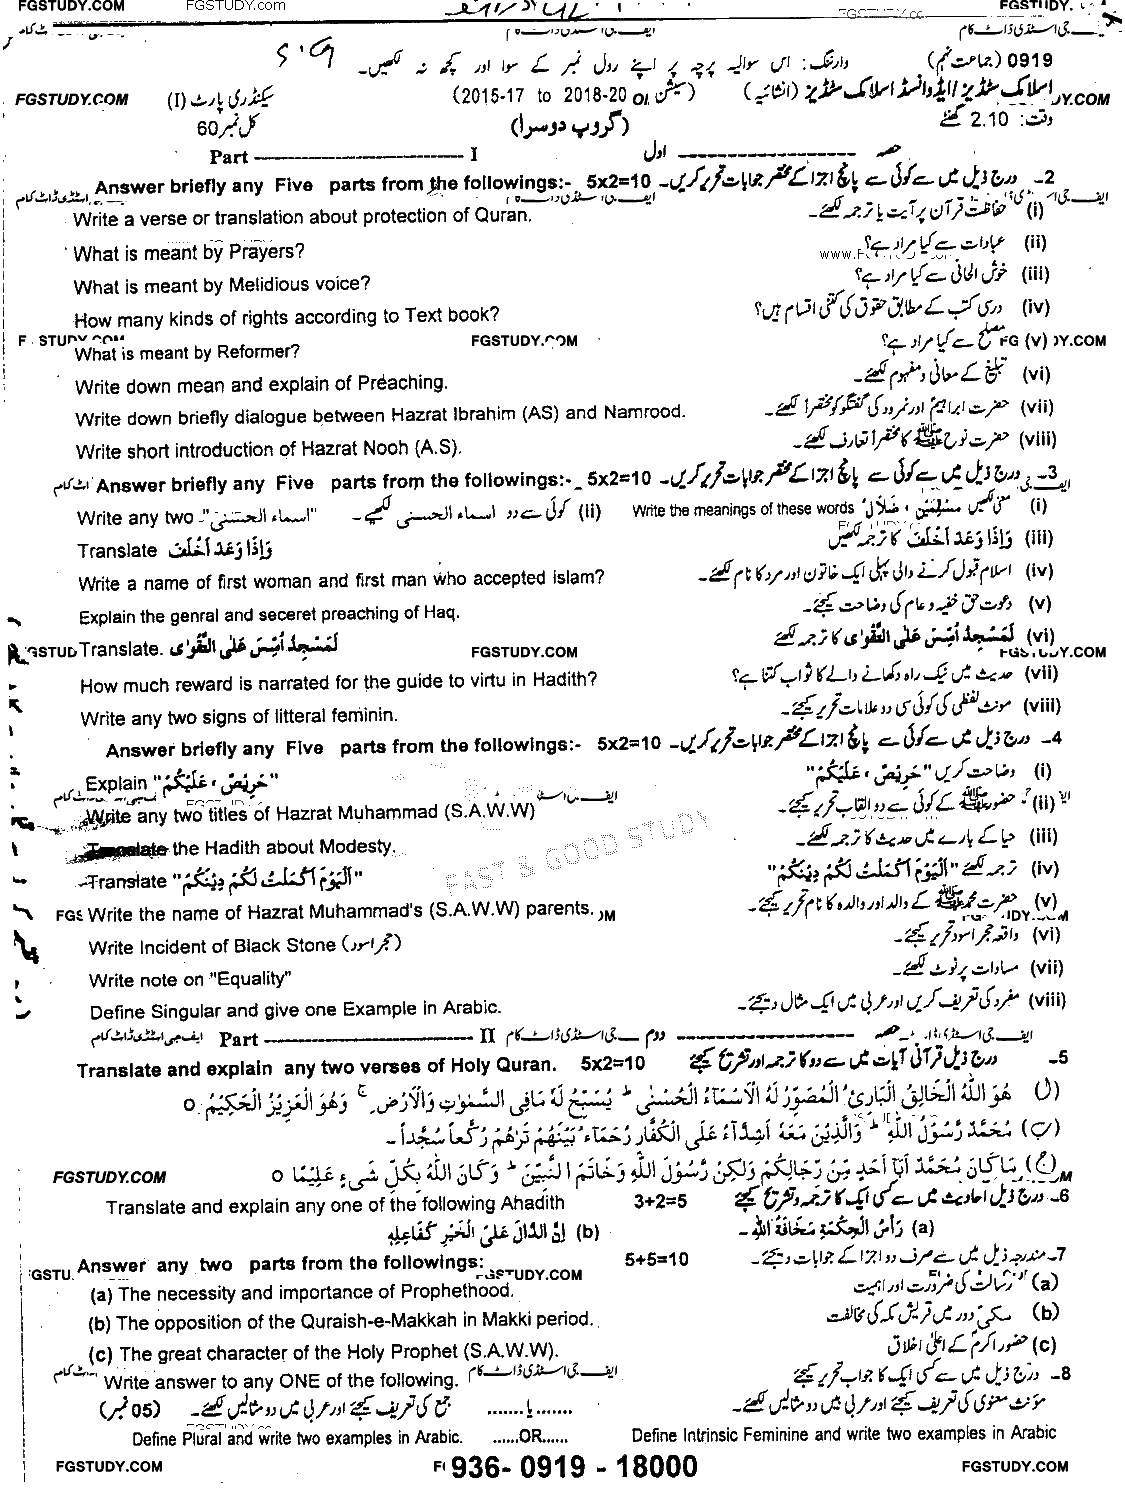 FGSTUDY.COM FGSTUDY.com
0919 (جماعت نہم) وارننگ: اس سوالیہ پرچہ پر اپنے رول نمبر کے سوا اور کچھ نہ لکھیں۔
FGSTUDY.COM اسلامک سٹڈیز/ایڈوانسڈ اسلامک سٹڈیز (انشائیہ) (سیشن 2015-17 to 2018-20) سیکنڈری پارٹ (I)
وقت: 2.10 گھنٹے (گروپ دوسرا) کل نمبر 60
حصہ ---------- اول Part ---------- I
2۔ درج ذیل میں سے کوئی سے پانچ اجزا کے مختصر جوابات تحریر کریں۔ 5x2=10 Answer briefly any Five parts from the followings:-
(i) حفاظت قرآن پر آیت یا ترجمہ لکھئے۔ Write a verse or translation about protection of Quran.
(ii) عبادات سے کیا مراد ہے؟ What is meant by Prayers?
(iii) خوش الحانی سے کیا مراد ہے؟ What is meant by Melidious voice?
(iv) درسی کتب کے مطابق حقوق کی کتنی اقسام ہیں؟ How many kinds of rights according to Text book?
(v) مصلح سے کیا مراد ہے؟ What is meant by Reformer?
(vi) تبلیغ کے معانی و مفہوم لکھئے۔ Write down mean and explain of Preaching.
(vii) حضرت ابراہیم اور نمرود کی گفتگو کو مختصراً لکھئے۔ Write down briefly dialogue between Hazrat Ibrahim (AS) and Namrood.
(viii) حضرت نوح ﷺ کا مختصراً تعارف لکھئے۔ Write short introduction of Hazrat Nooh (A.S).
3۔ درج ذیل میں سے کوئی سے پانچ اجزا کے مختصر جوابات تحریر کریں۔ 5x2=10 Answer briefly any Five parts from the followings:-
(i) معنی لکھیں مُسْلِمِيْنَ ، ضَلَالٍ Write the meanings of these words (ii) کوئی سے دو اسماء الحسنی لکھیے۔ Write any two "اسماء الحسنی"
(iii) وَإِذَا وَعَدَ أَخْلَفَ کا ترجمہ لکھیں Translate وَإِذَا وَعَدَ أَخْلَفَ
(iv) اسلام قبول کرنے والی پہلی ایک خاتون اور مرد کا نام لکھئے۔ Write a name of first woman and first man who accepted islam?
(v) دعوت حق خفیہ و عام کی وضاحت کیجئے۔ Explain the genral and seceret preaching of Haq.
(vi) لَمَسْجِدٌ اُسِّسَ عَلَى التَّقْوٰى کا ترجمہ لکھئے Translate. لَمَسْجِدٌ اُسِّسَ عَلَى التَّقْوٰى
FGSTUDY.COM
(vii) حدیث میں نیک راہ دکھانے والے کا ثواب کتنا ہے؟ How much reward is narrated for the guide to virtu in Hadith?
(viii) مونث لفظی کی کوئی سی دو علامات تحریر کیجئے۔ Write any two signs of litteral feminin.
4۔ درج ذیل میں سے کوئی سے پانچ اجزا کے مختصر جوابات تحریر کریں۔ 5x2=10 Answer briefly any Five parts from the followings:-
(i) وضاحت کریں "حَرِيْصٌ ، عَلَيْكُمْ" Explain "حَرِيْصٌ ، عَلَيْكُمْ"
(ii) حضور ﷺ کے کوئی سے دو القاب تحریر کیجئے۔ Write any two titles of Hazrat Muhammad (S.A.W.W)
(iii) حیا کے بارے میں حدیث کا ترجمہ لکھئے۔ Translate the Hadith about Modesty.
FAST & GOOD STUDY
(iv) ترجمہ لکھئے "اَلْيَوْمَ اَكْمَلْتُ لَكُمْ دِيْنَكُمْ" Translate "اَلْيَوْمَ اَكْمَلْتُ لَكُمْ دِيْنَكُمْ"
(v) حضرت محمد ﷺ کے والد اور والدہ کا نام تحریر کیجئے۔ Write the name of Hazrat Muhammad's (S.A.W.W) parents.
(vi) واقعہ حجر اسود تحریر کیجئے۔ Write Incident of Black Stone (حجر اسود)
(vii) مساوات پر نوٹ لکھئے۔ Write note on "Equality"
(viii) مفرد کی تعریف کریں اور عربی میں ایک مثال دیجئے۔ Define Singular and give one Example in Arabic.
حصہ ---------- دوم Part ---------- II
5۔ درج ذیل قرآنی آیات میں سے دو کا ترجمہ اور تشریح کیجئے 5x2=10 Translate and explain any two verses of Holy Quran.
(ا) هُوَ اللّٰهُ الْخَالِقُ الْبَارِئُ الْمُصَوِّرُ لَهُ الْاَسْمَآءُ الْحُسْنٰى ط يُسَبِّحُ لَهٗ مَا فِى السَّمٰوٰتِ وَالْاَرْضِ ج وَهُوَ الْعَزِيْزُ الْحَكِيْمُ o
(ب) مُحَمَّدٌ رَّسُوْلُ اللّٰهِ ط وَالَّذِيْنَ مَعَهٗ اَشِدَّآءُ عَلَى الْكُفَّارِ رُحَمَآءُ بَيْنَهُمْ تَرٰهُمْ رُكَّعًا سُجَّدًا۔
(ج) مَا كَانَ مُحَمَّدٌ اَبَآ اَحَدٍ مِّنْ رِّجَالِكُمْ وَلٰكِنْ رَّسُوْلَ اللّٰهِ وَخَاتَمَ النَّبِيّٖنَ ط وَكَانَ اللّٰهُ بِكُلِّ شَىْءٍ عَلِيْمًا o FGSTUDY.COM
6۔ درج ذیل احادیث میں سے کسی ایک کا ترجمہ و تشریح کیجئے 3+2=5 Translate and explain any one of the following Ahadith
(a) رَأْسُ الْحِكْمَةِ مَخَافَةُ اللهِ۔ (b) اِنَّ الدَّالَّ عَلَى الْخَيْرِ كَفَاعِلِهٖ
7۔ مندرجہ ذیل میں سے صرف دو اجزا کے جوابات دیجئے۔ 5+5=10 Answer any two parts from the followings:
(a) رسالت کی ضرورت اور اہمیت (a) The necessity and importance of Prophethood.
(b) مکی دور میں قریش مکہ کی مخالفت (b) The opposition of the Quraish-e-Makkah in Makki period.
(c) حضور اکرم کے اعلیٰ اخلاق (c) The great character of the Holy Prophet (S.A.W.W).
8۔ درج ذیل میں سے کسی ایک کا جواب تحریر کیجئے Write answer to any ONE of the following.
مؤنث معنوی کی تعریف کیجئے اور عربی میں دو مثالیں لکھئے۔ .......یا....... جمع کی تعریف کیجئے اور عربی میں دو مثالیں لکھئے۔ (05 نمبر)
Define Plural and write two examples in Arabic. ......OR...... Define Intrinsic Feminine and write two examples in Arabic
FGSTUDY.COM 936- 0919 - 18000 FGSTUDY.COM